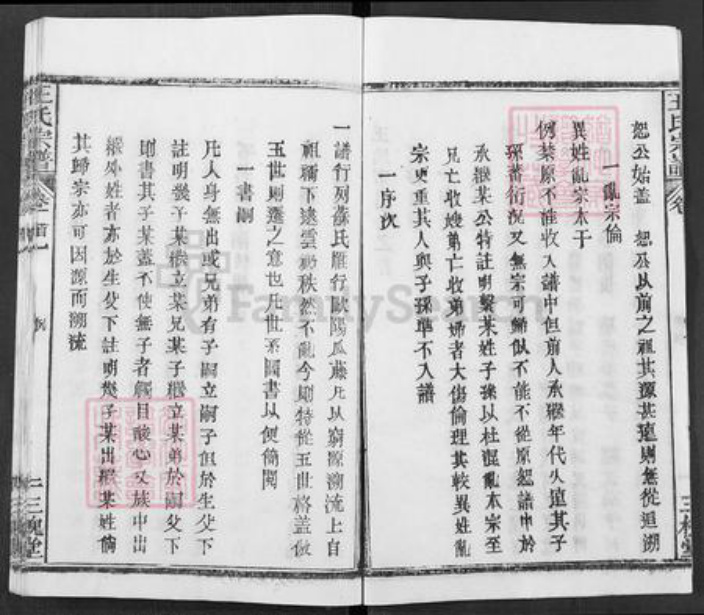 恕公始蓋 恕公以前之祖其源甚遠則無從追溯
一亂宗倫
異姓亂宗本干
例禁原不准收入譜中但前人承繼年代久遠其子
孫蕃衍況又無宗可歸似不能不從原恕譜中於
承繼某公特註明繫某姓子孫以杜混亂本宗至
兄亡收嫂弟亡收弟婦者大傷倫理其較異姓亂
宗更重其人與子孫準不入譜
一序次
一譜行列蘇氏雁行歐陽瓜藤凡以窮源溯流上自
祖禰下逮雲礽秩然不亂今剛特從五世格蓋倣
五世則遷之意也凡世系圖書以便簡閱
一書嗣
凡人身無出或兄弟有子嗣立嗣子但於生父下
註明幾子某繼立某兄某子繼立某弟於嗣父下
即書其子某蓋不使無子者觸目酸心又族中出
繼外姓者亦於生父下註明幾子某出繼某姓倘
其歸宗亦可因源而溯流
王氏宗譜 卷首
三槐堂
王氏宗譜 卷
三槐堂
FamilySearch